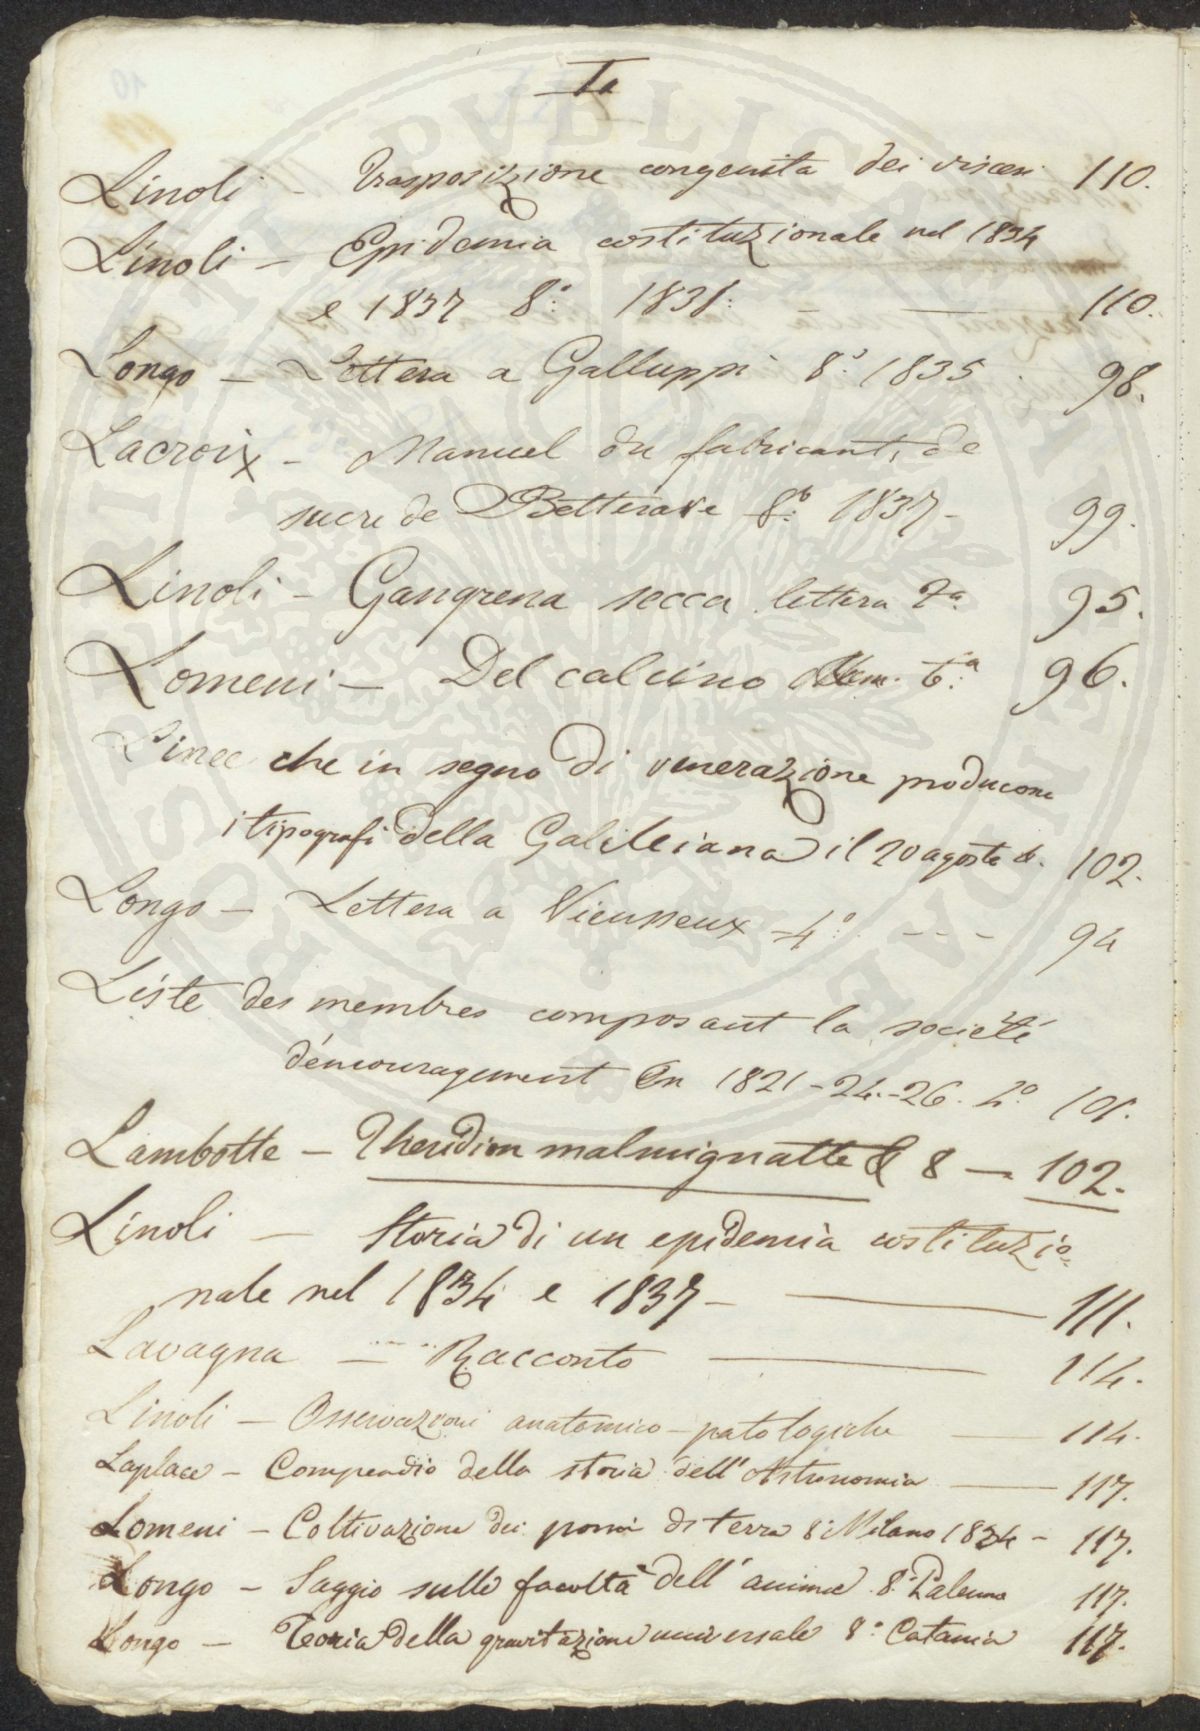 Linoli - Trasposizione congenita dei visceri 110.
Linoli - Epidemia costituzionale nel 1834
e 1837 8.° 1838. - — 110.
Longo - Lettera a Galluppi 8.° 1835. 98.
Lacroix - Manuel du fabricant, de
sucre de Betterave 8.° 1837 - 99.
Linoli - Gangrena secca lettera 2.a 95.
Lomeni - Del calcino Mem. 6.a 96.
Linee che in segno di venerazione producono
i tipografi della Galileiana il 20 agosto 102.
Longo - Lettera a Vieusseux 4.° - - - 94
Liste des membres composant la société
d'encouragement En 1821-24-26. 4.° 101.
Lambotte - Theridion malmignatte 8 — 102.
Linoli — Storia di un epidemia costituzio-
nale nel 1834 e 1837 - — 111.
Lavagna — Racconto — 114.
Linoli - Osservazioni anatomico-patologiche — 114.
Laplace - Compendio della storia dell'Astronomia — 117.
Lomeni - Coltivazione dei pomi di terra 8.° Milano 1834 - 117.
Longo - Saggio sulle facoltà dell'anima 8.° Palermo 117.
Longo - Teoria della gravitazione universale 8.° Catania 117.